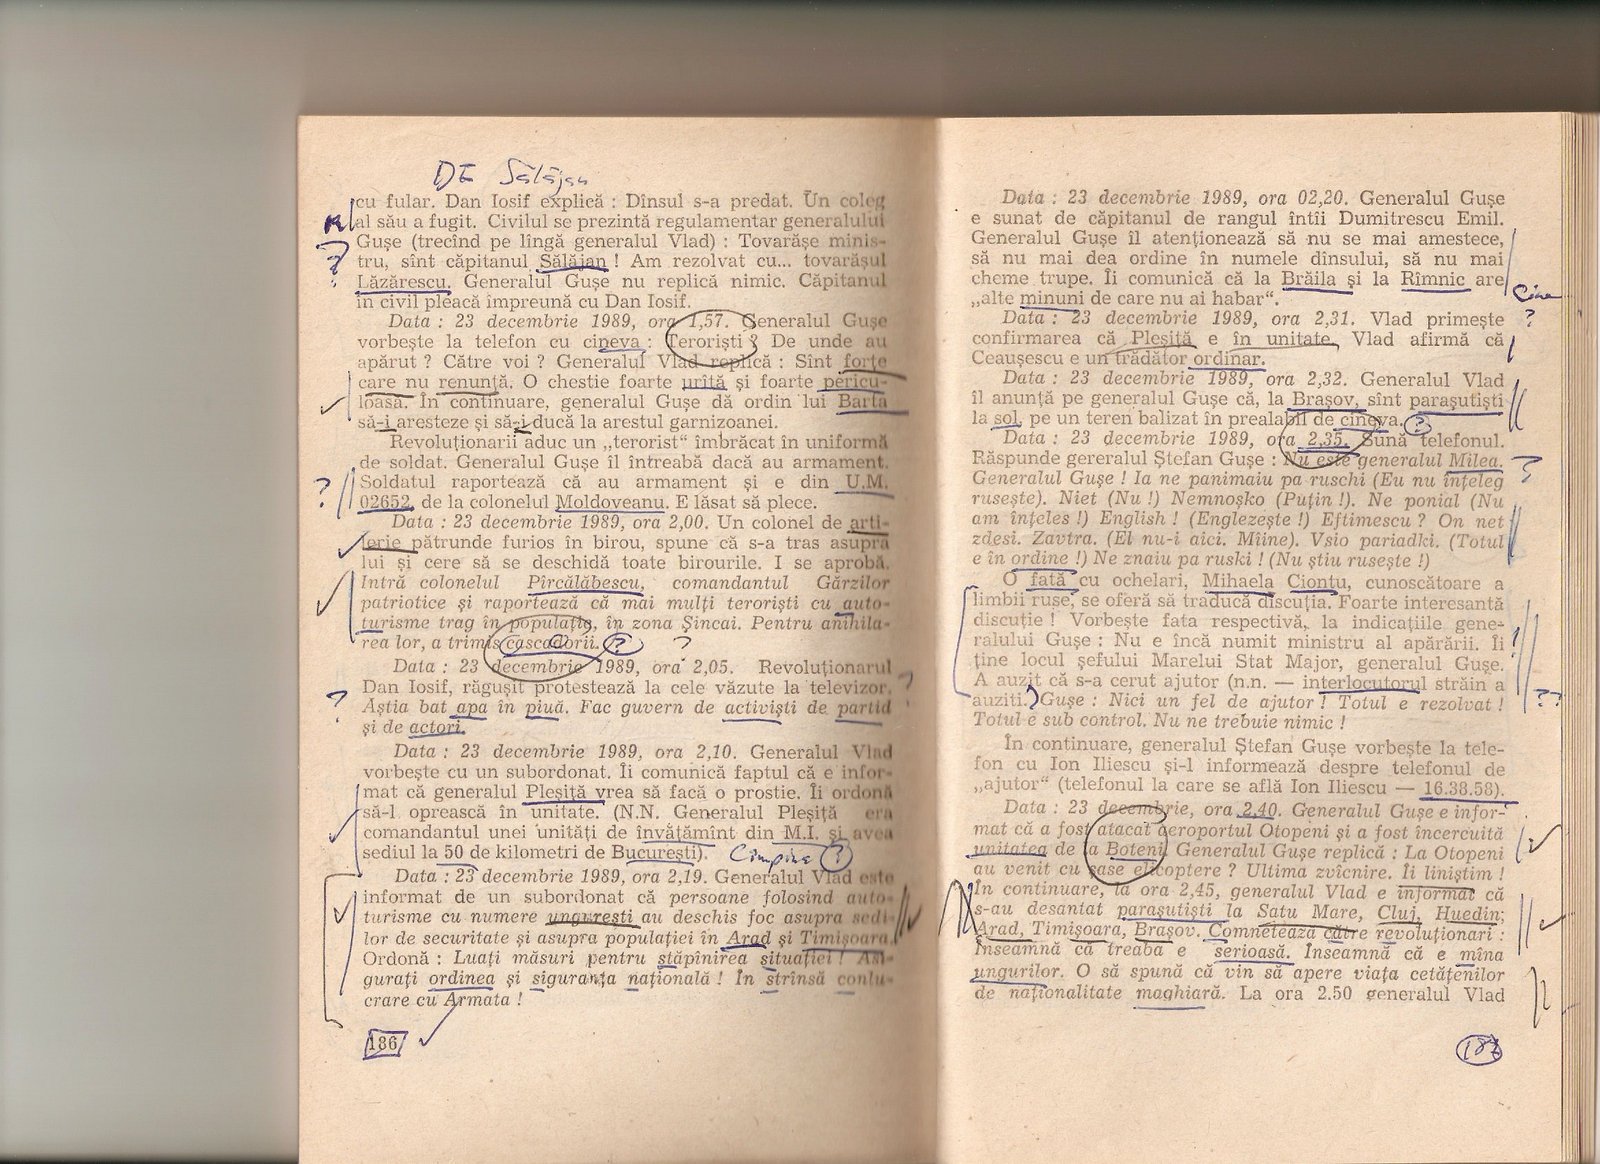 DE Sălăjan
cu fular. Dan Iosif explică : Dînsul s-a predat. Un coleg
al său a fugit. Civilul se prezintă regulamentar generalului
Gușe (trecînd pe lîngă generalul Vlad) : Tovarășe minis-
tru, sînt căpitanul Sălăjan ! Am rezolvat cu... tovarășul
Lăzărescu. Generalul Gușe nu replică nimic. Căpitanul
în civil pleacă împreună cu Dan Iosif.
Data : 23 decembrie 1989, ora 1,57. Generalul Gușe
vorbește la telefon cu cineva : Teroriști ? De unde au
apărut ? Către voi ? Generalul Vlad replică : Sînt forțe
care nu renunță. O chestie foarte urîtă și foarte pericu-
loasă. În continuare, generalul Gușe dă ordin lui Barta
să-i aresteze și să-i ducă la arestul garnizoanei.
Revoluționarii aduc un „terorist“ îmbrăcat în uniformă
de soldat. Generalul Gușe îl întreabă dacă au armament.
Soldatul raportează că au armament și e din U.M.
02652, de la colonelul Moldoveanu. E lăsat să plece.
Data : 23 decembrie 1989, ora 2,00. Un colonel de arti-
lerie pătrunde furios în birou, spune că s-a tras asupra
lui și cere să se deschidă toate birourile. I se aprobă.
Intră colonelul Pîrcălăbescu, comandantul Gărzilor
patriotice și raportează că mai mulți teroriști cu auto-
turisme trag în populație, în zona Șincai. Pentru anihila-
rea lor, a trimis cascadorii. ? ?
Data : 23 decembrie 1989, ora 2,05. Revoluționarul
Dan Iosif, răgușit protestează la cele văzute la televizor.
Aștia bat apa în piuă. Fac guvern de activiști de partid
și de actori.
Data : 23 decembrie 1989, ora 2,10. Generalul Vlad
vorbește cu un subordonat. Îi comunică faptul că e infor-
mat că generalul Pleșiță vrea să facă o prostie. Îi ordonă
să-l oprească în unitate. (N.N. Generalul Pleșiță era
comandantul unei unități de învățămînt din M.I. și avea
sediul la 50 de kilometri de București). Cîmpina ?
Data : 23 decembrie 1989, ora 2,19. Generalul Vlad este
informat de un subordonat că persoane folosind auto-
turisme cu numere ungurești au deschis foc asupra sedi-
ilor de securitate și asupra populației în Arad și Timișoara.
Ordonă : Luați măsuri pentru stăpînirea situației ! Asi-
gurați ordinea și siguranța națională ! În strînsă conlu-
crare cu Armata !
186
Data : 23 decembrie 1989, ora 02,20. Generalul Gușe
e sunat de căpitanul de rangul întîi Dumitrescu Emil.
Generalul Gușe îl atenționează să nu se mai amestece,
să nu mai dea ordine în numele dînsului, să nu mai
cheme trupe. Îi comunică că la Brăila și la Rîmnic are
„alte minuni de care nu ai habar“. Cine
Data : 23 decembrie 1989, ora 2,31. Vlad primește ?
confirmarea că Pleșiță e în unitate. Vlad afirmă că
Ceaușescu e un trădător ordinar.
Data : 23 decembrie 1989, ora 2,32. Generalul Vlad
îl anunță pe generalul Gușe că, la Brașov, sînt parașutiști
la sol, pe un teren balizat în prealabil de cineva. ?
Data : 23 decembrie 1989, ora 2,35. Sună telefonul.
Răspunde gereralul Ștefan Gușe : Nu este generalul Milea. ?
Generalul Gușe ! Ia ne panimaiu pa ruschi (Eu nu înțeleg
rusește). Niet (Nu !) Nemnoșko (Puțin !). Ne ponial (Nu
am înțeles !) English ! (Englezește !) Eftimescu ? On net
zdesi. Zavtra. (El nu-i aici. Mîine). Vsio pariadki. (Totul
e în ordine !) Ne znaiu pa ruski ! (Nu știu rusește !)
O fată cu ochelari, Mihaela Ciontu, cunoscătoare a
limbii ruse, se oferă să traducă discuția. Foarte interesantă
discuție ! Vorbește fata respectivă, la indicațiile gene-
ralului Gușe : Nu e încă numit ministru al apărării. Îi
ține locul șefului Marelui Stat Major, generalul Gușe.
A auzit că s-a cerut ajutor (n.n. — interlocutorul străin a
auzit). Gușe : Nici un fel de ajutor ! Totul e rezolvat ! ??
Totul e sub control. Nu ne trebuie nimic !
În continuare, generalul Ștefan Gușe vorbește la tele-
fon cu Ion Iliescu și-l informează despre telefonul de
„ajutor“ (telefonul la care se află Ion Iliescu — 16.38.58).
Data : 23 decembrie, ora 2,40. Generalul Gușe e infor-
mat că a fost atacat aeroportul Otopeni și a fost încercuită
unitatea de la Boteni. Generalul Gușe replică : La Otopeni
au venit cu șase elicoptere ? Ultima zvîcnire. Îi liniștim !
În continuare, la ora 2,45, generalul Vlad e informat că
s-au desantat parașutiști la Satu Mare, Cluj, Huedin;
Arad, Timișoara, Brașov. Comnetează către revoluționari :
Înseamnă că treaba e serioasă. Înseamnă că e mîna
ungurilor. O să spună că vin să apere viața cetățenilor
de naționalitate maghiară. La ora 2.50 generalul Vlad
187